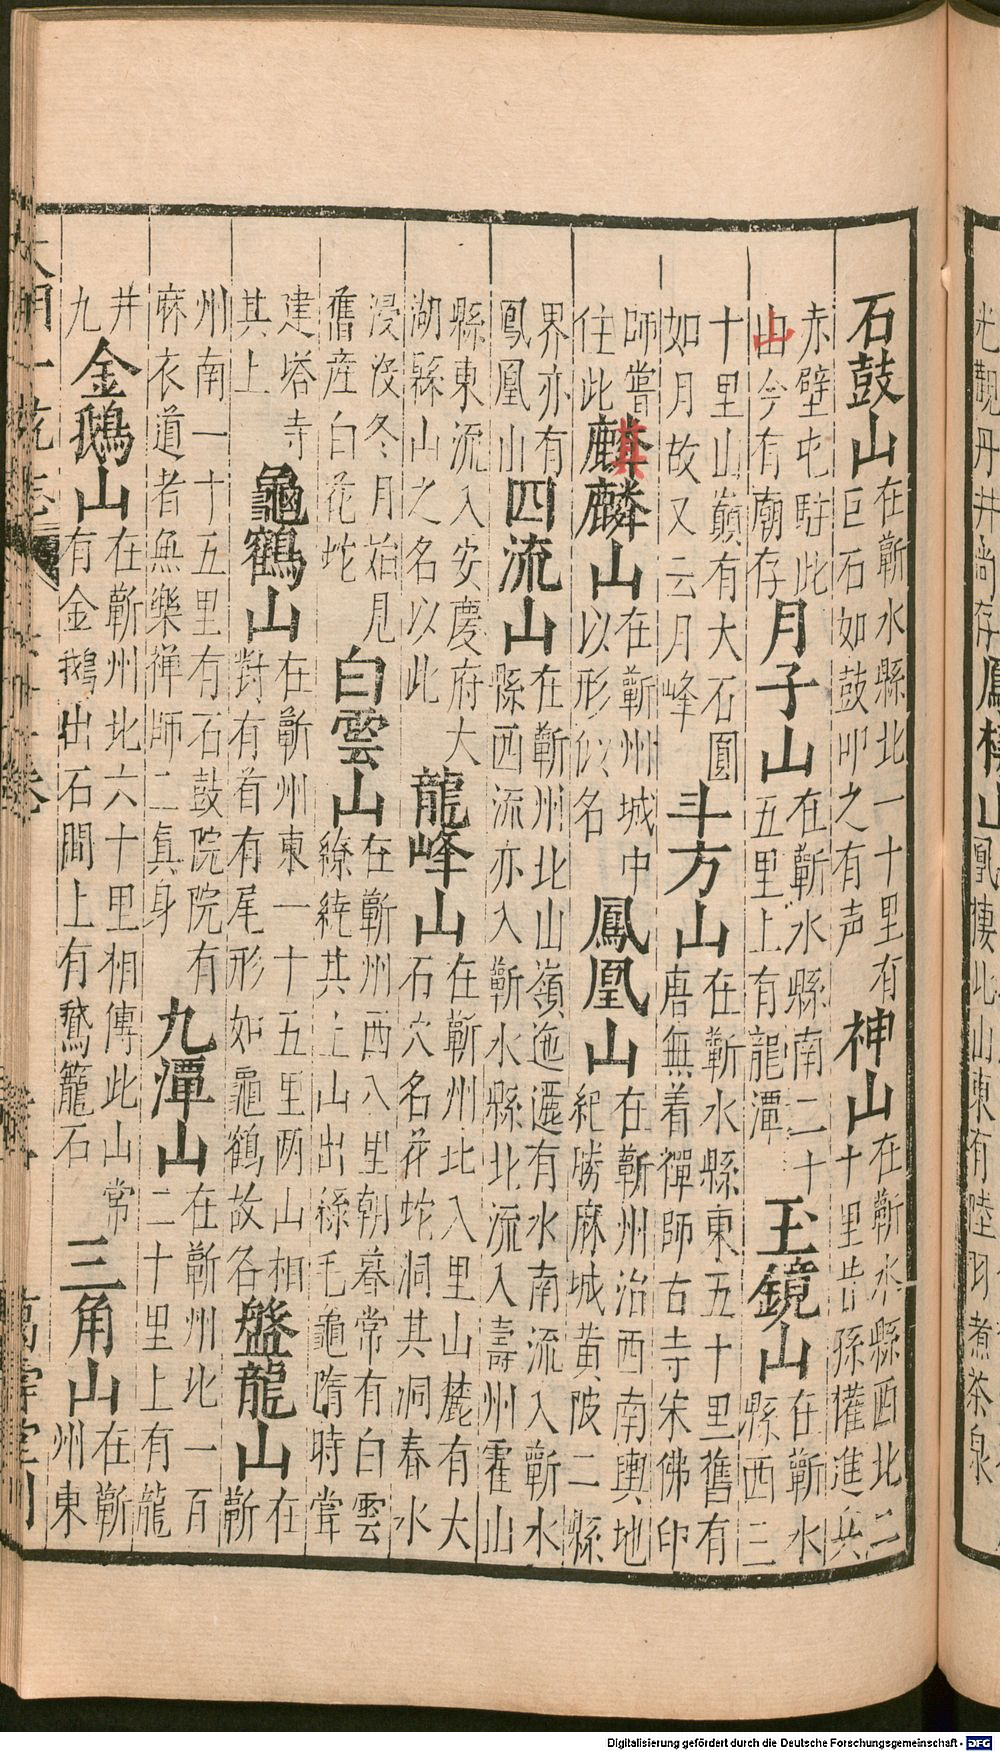 石鼓山在蘄水縣北一十里有巨石如鼓叩之有声神山在蘄水縣西北二十里昔孫權進兵
赤壁屯駐此山今有廟存月子山在蘄水縣南二十五里上有龍潭玉鏡山在蘄水縣西三
十里山巔有大石圓如月故又云月峰斗方山在蘄水縣東五十里舊有唐無着禪師古寺宋佛印
師嘗住此麒麟山在蘄州城中以形似名鳳凰山在蘄州治西南輿地紀勝麻城黃陂二縣
界亦有鳳凰山四流山在蘄州北山嶺迤邐有水南流入蘄水縣西流亦入蘄水縣北流入壽州霍山
縣東流入安慶府太湖縣山之名以此龍峰山在蘄州北入里山麓有大石穴名花蛇洞其洞春水
浸没冬月始見舊産白花蛇白雲山在蘄州西八里朝暮常有白雲繚繞其上山出綠毛龜隋時嘗
建塔寺其上龜鶴山在蘄州東一十五里两山相對有首有尾形如龜鶴故名盤龍山在蘄
州南一十五里有石鼓院院有麻衣道者無樂禪師二真身九潭山在蘄州北一百二十里上有龍
井九金鵝山在蘄州北六十里相傳此山常有金鵝出石間上有鵝籠石三角山在蘄州東
大明一統志
卷
萬壽堂刊
山
其
光觀丹井尚存鳳棲山
凰棲此山東有陸羽煮茶泉
Digitalisierung gefördert durch die Deutsche Forschungsgemeinschaft - DFG